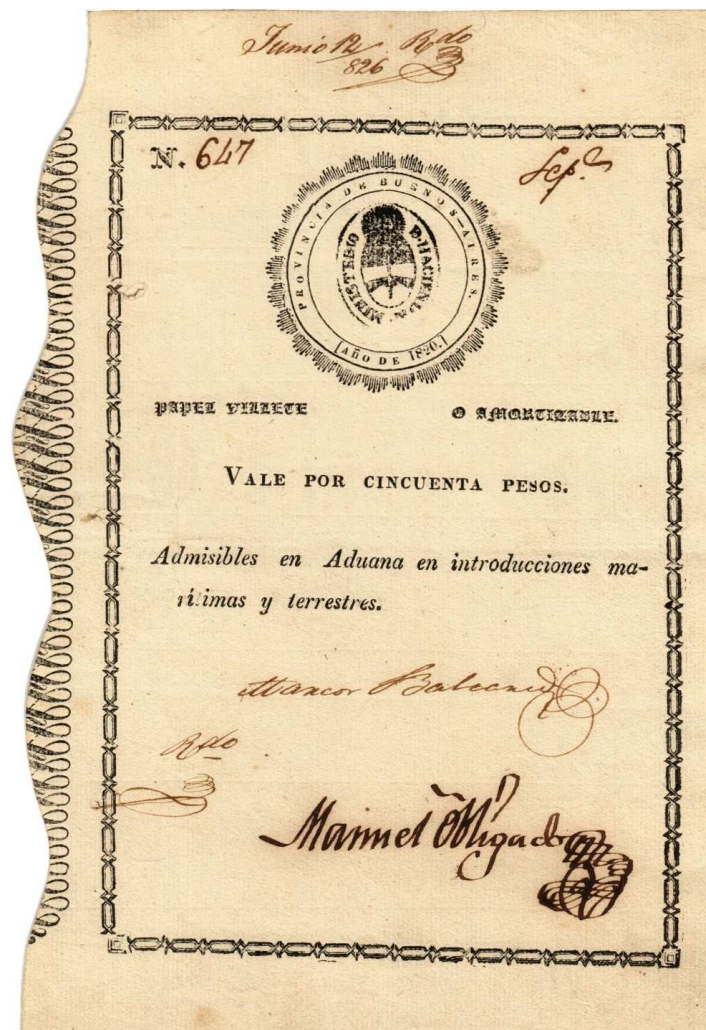 Junio 12 Rdo
826
N. 647
Sep.e
PROVINCIA DE BUENOS-AIRES.
MINISTERIO D. HACIENDA.
[AÑO DE 1820.]
PAPEL VILLETE O AMORTIZABLE.
VALE POR CINCUENTA PESOS.
Admisibles en Aduana en introducciones ma-
rítimas y terrestres.
Marcos Balcarce
Rdo
Manuel Obligado